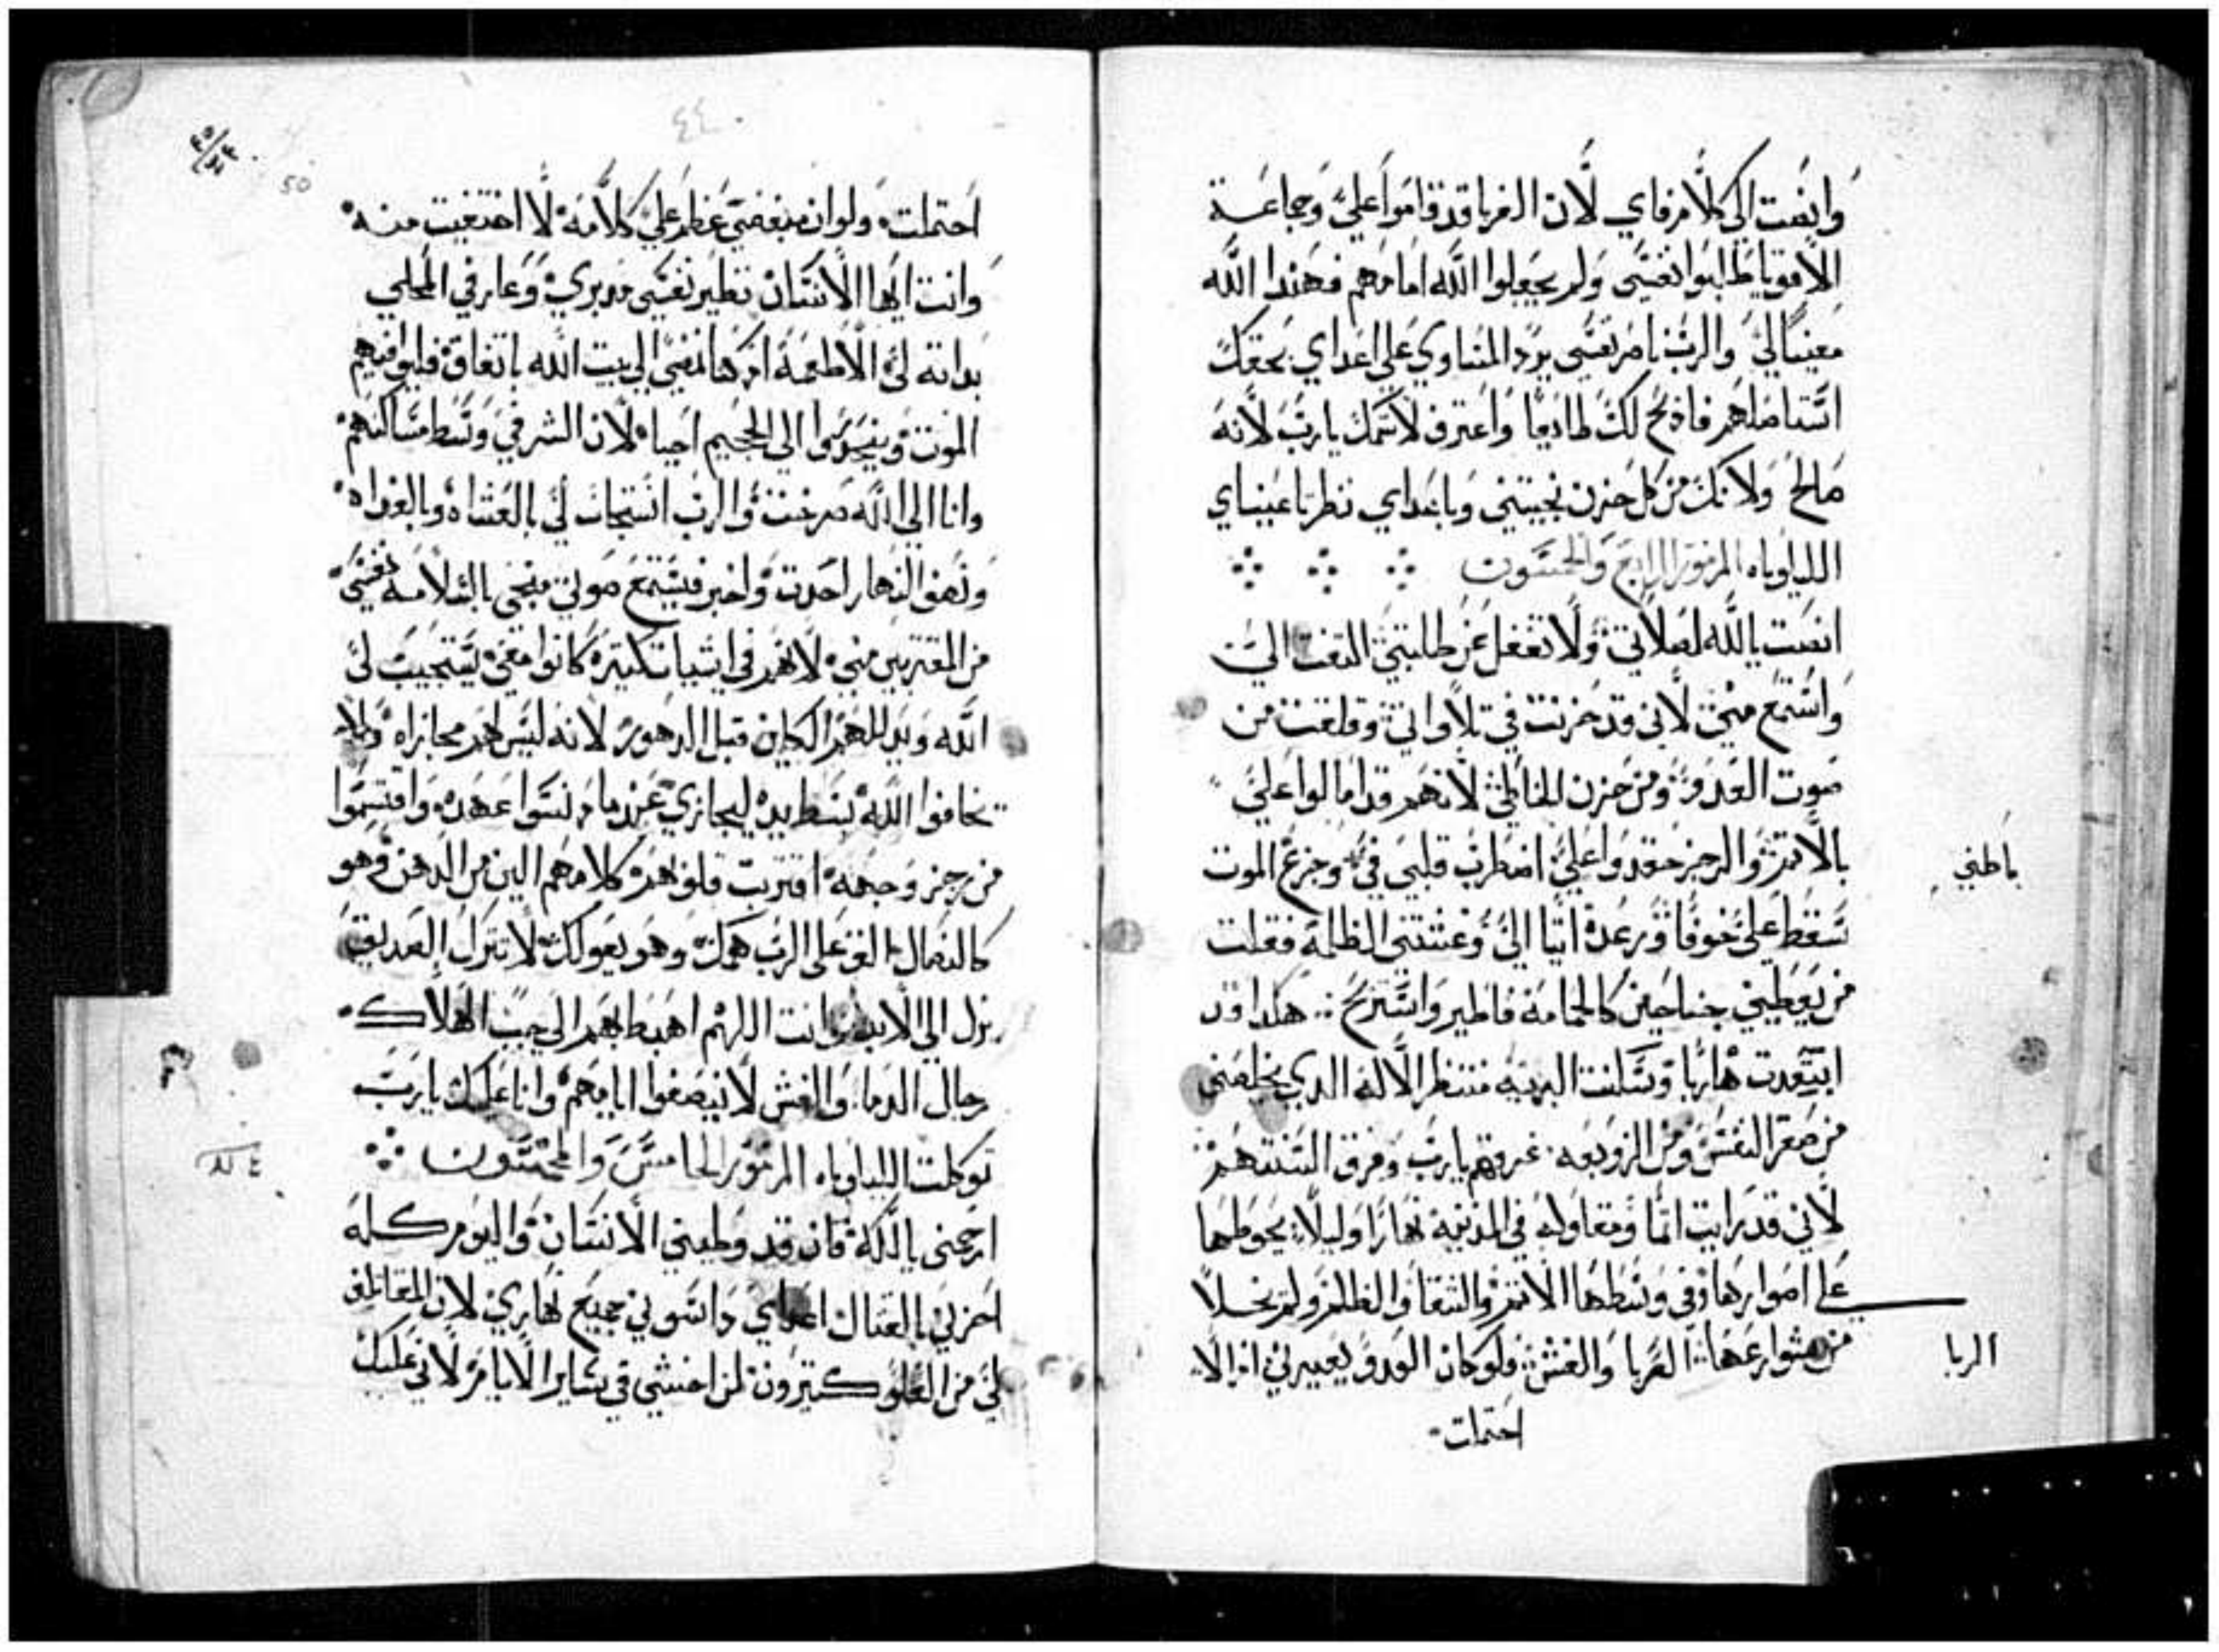 وانصت الى كلام فاي لان الغربا قد قاموا علي وجماعة
الاقويا طلبوا نفسي ولم يجعلوا الله امامهم فهندا الله
معينا لي والرب ناصر نفسي يرد المساوي على اعداي بحقك
استاصلهم فاذبح لك طايعا واعترف لاسمك يارب لانه
صالح ولانك من كل حزن نجيتني وباعداي نظرتا عيناي
الليلوياه المزمور الرابع والخمسون
انصت يالله لصلاتي ولا تغفل عن طلبتي التفت الي
واستمع مني لاني قد حزنت في تلاواتي وقلقت من
صوت العدو ومن حزن الخاطي لانهم قد امالوا علي
بالاتم والرجز حقدوا علي اضطرب قلبي في وجزع الموت
سقط علي خوفا ورعدة اتيا الي وغشتني الظلمة فقلت
من يعطيني جناحين كالحمامة فاطير واستريح هكدا قد
ابتعدت هاربا وسكنت البرية منتظر الاله الدي يخلصني
من صغر النفس ومن الزوبعه غرقهم يارب وفرق السنتهم
لاني قد رايت اتما ومقاوله في المدينة نهارا وليلا يحوطها
على اصوارها وفي وسطها الاتم والشقا والظلم ولم يخلا
من شوارعها الربا والغش فلو كان العدو يعيرني ادا لا
احتملت
باطني
الربا
٤٤
50
احتملت ولو ان مبغضي عظم علي كلامه لاختفيت منه
وانت ايها الانسان نظير نفسي مدبري وعارفي المحلي
بداته لي الاطعمة
نمضي الى بيت الله باتفاق فليوافيهم
الموت وينحدروا الى الجحيم احيا لان الشر في وسط مساكنهم
وانا الى الله صرخت والرب استجاب لي بالعشاه وبالغداه
ونصف النهار احدت واخبر فيستمع صوتي منجي بالسلامه نفسي
من المقتربين مني لانهم في اشيات كتيرة كانوا معي يستجيب لي
الله ويدللهم الكاين قبل الدهور لانه ليس لهم مجازاه ولم
يخافوا الله بسط يده ليجازي عندما دنسوا عهده واقتسموا
من رجز وجهه اقتربت قلوبهم كلامهم الين من الدهن وهو
كالنصال الق على الرب همك وهو يعولك لا يترك الصديق
يزل الى الابد وانت اللهم اهبط بهم الى جب الهلاك
رجال الدما والغش لا ينصفوا ايامهم وانا عليك يارب
توكلت الليلوياه المزمور الخامس والخمسون
ارحمني يالله فان قد وطيني الانسان واليوم كله
احزني بالقتال اعداي داسوني جميع نهاري لان المقاتلين
لي من العلو كتيرون لن اخشي في ساير الايام لاني عليك